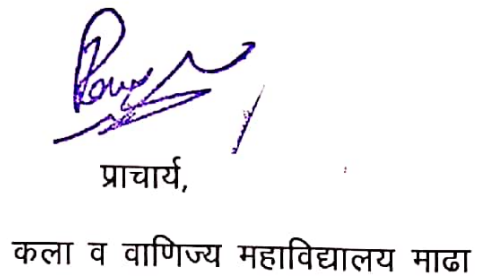 प्राचार्य,
कला व वाणिज्य महाविद्यालय माढा